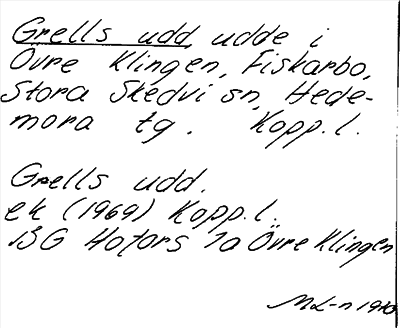 Grells udd, udde i
Övre Klingen, Fiskarbo,
Stora Skedvi sn, Hede-
mora tg. Kopp. l.
Grells udd.
ek (1969) Kopp. l.
13G Hofors 1a Övre Klingen